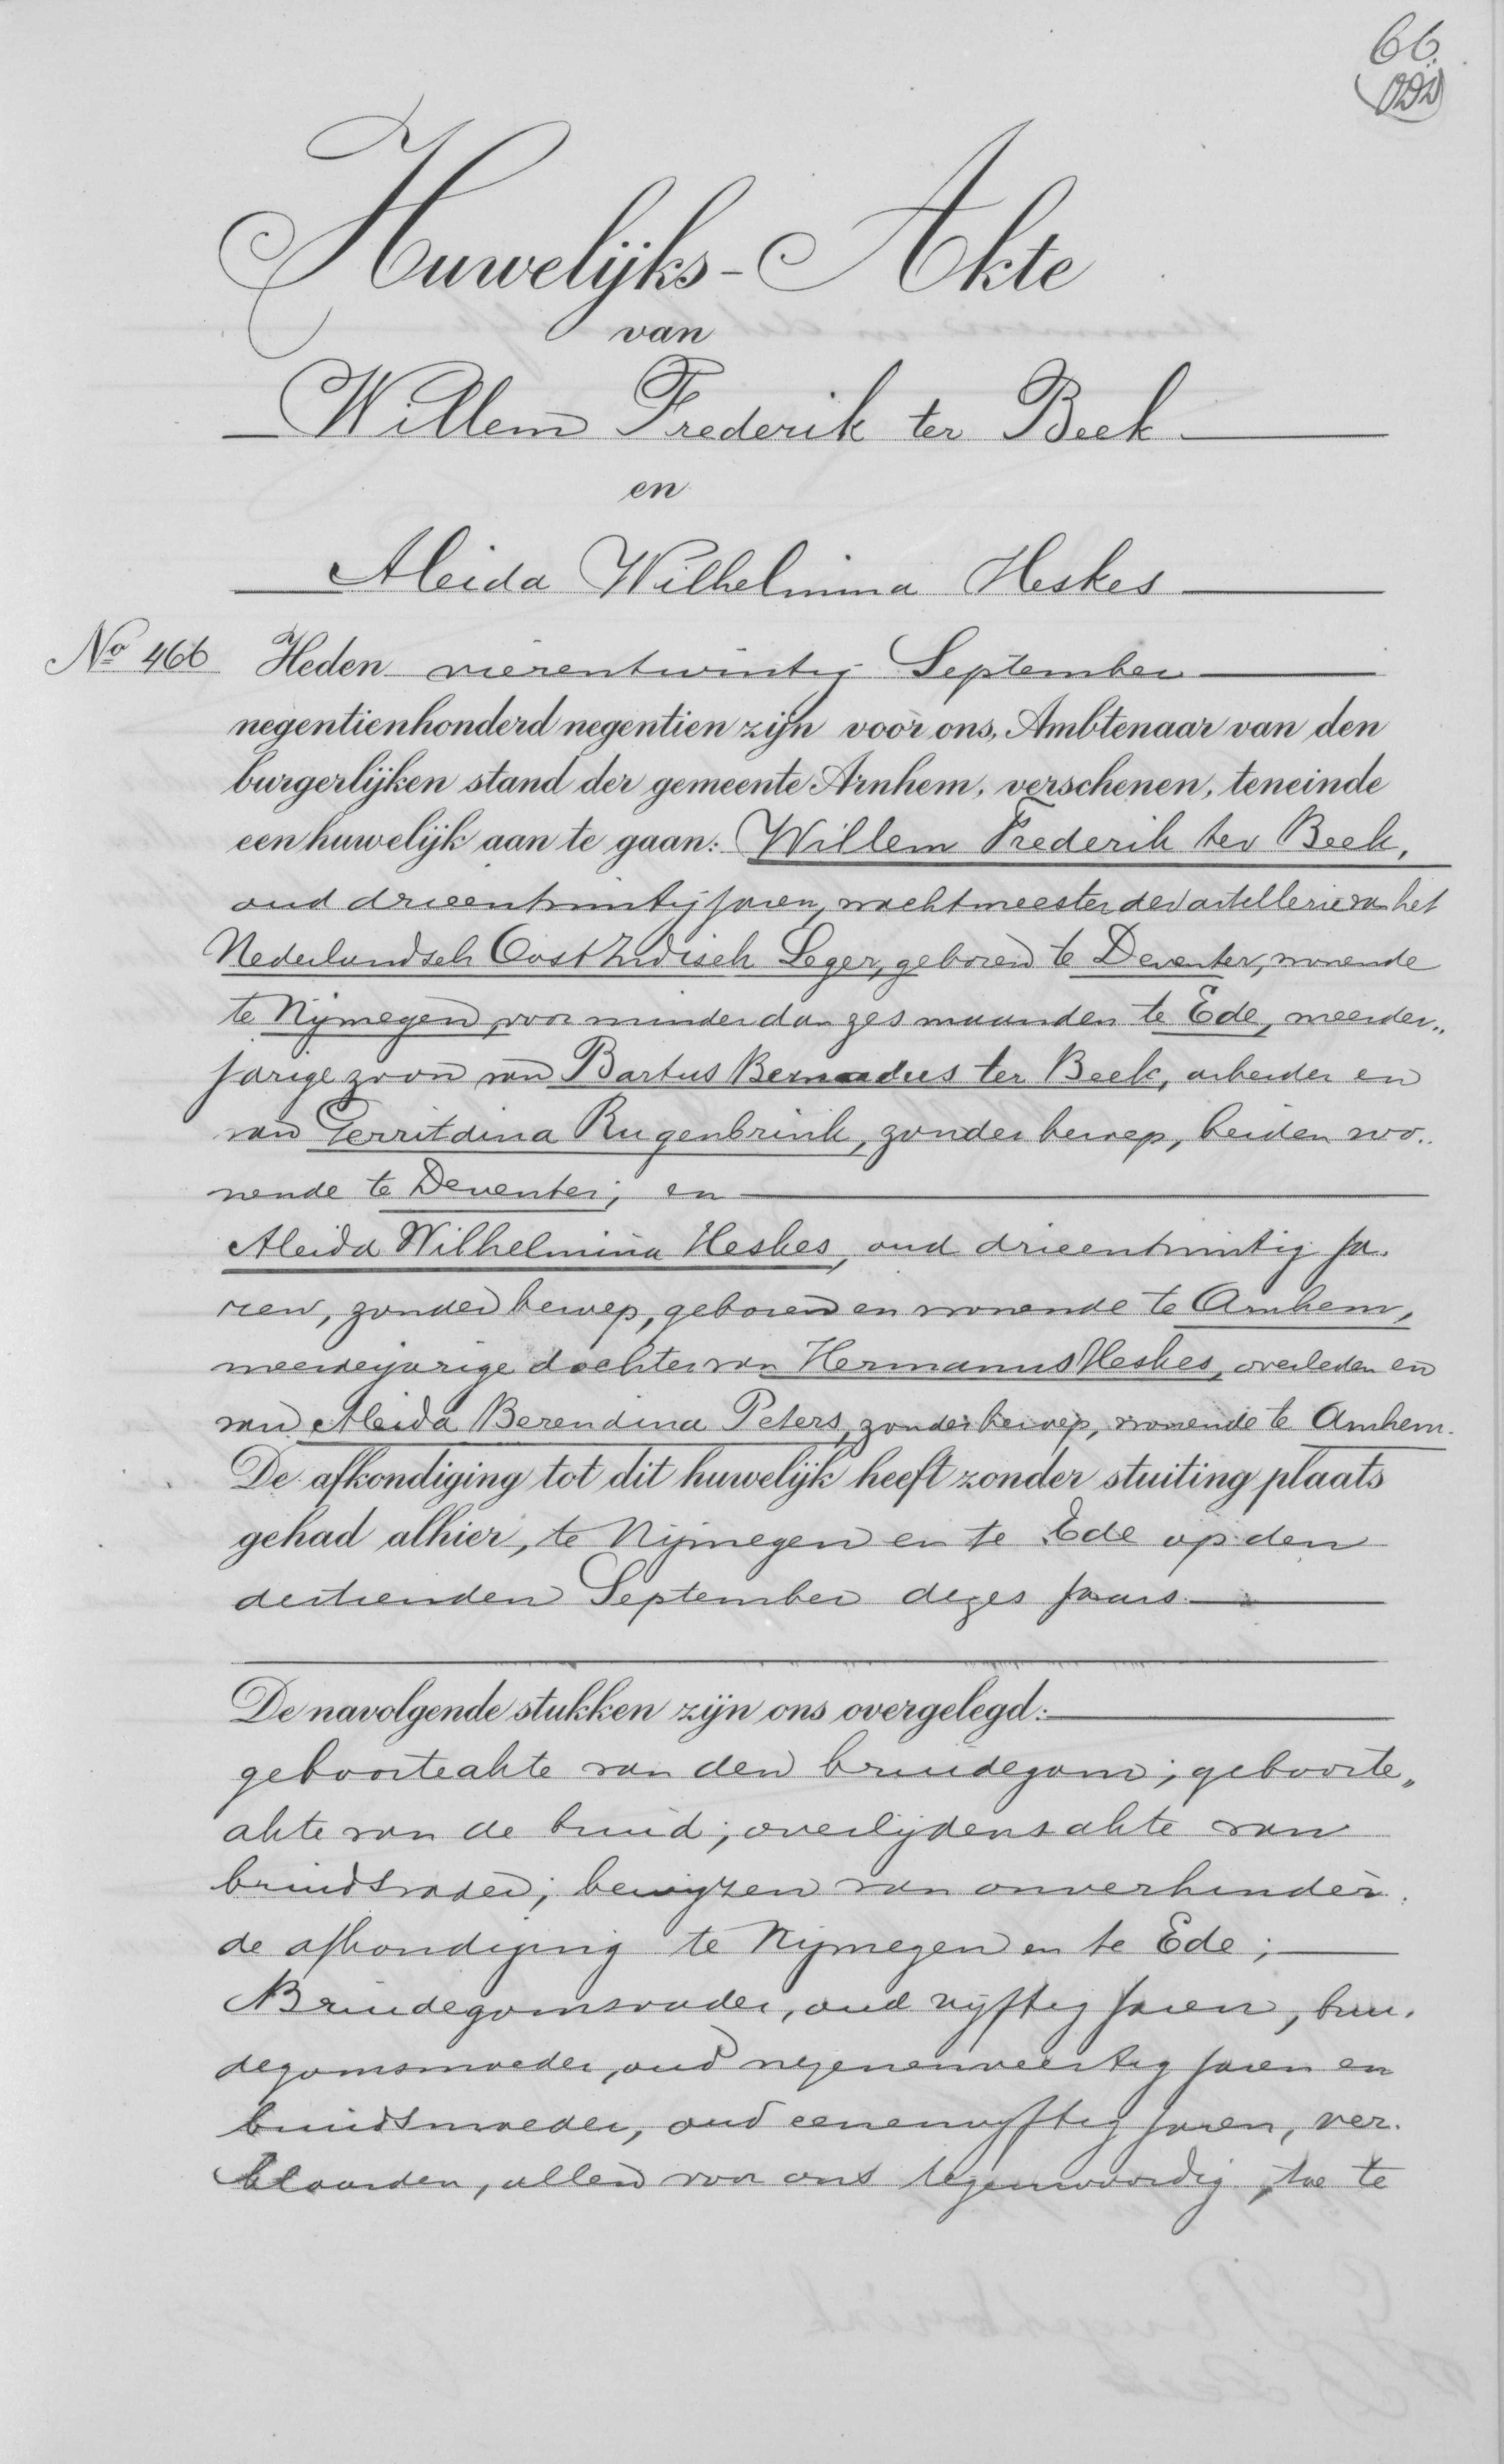 66.
Huwelijks-Akte
van
Willem Frederik ter Beek
en
Aleida Wilhelmina Heskes
No 466 Heden vierentwintig September
negentienhonderd negentien zijn voor ons, Ambtenaar van den
burgerlijken stand der gemeente Arnhem, verschenen, teneinde
een huwelijk aan te gaan: Willem Frederik ter Beek,
oud drieentwintig jaren, wachtmeester der artillerie van het
Nederlandsch Oost Indisch Leger, geboren te Deventer, wonende
te Nijmegen, voor minder dan zes maanden te Ede, meerder„
jarige zoon van Bartus Bernardus ter Beek, arbeider en
van Gerritdina Rugenbrink, zonder beroep, beiden wo..
nende te Deventer; en
Aleida Wilhelmina Heskes, oud drieentwintig ja.
ren, zonder beroep, geboren en wonende te Arnhem,
meerderjarige dochter van Hermanus Heskes, overleden en
van Aleida Berendina Peters, zonder beroep, wonende te Arnhem.
De afkondiging tot dit huwelijk heeft zonder stuiting plaats
gehad alhier, te Nijmegen en te Ede op den
dertienden September dezes jaars
De navolgende stukken zijn ons overgelegd:
geboorteakte van den bruidegom; geboorte„
akte van de bruid; overlijdensakte van
bruidsvader; bewijzen van onverhinder.
de afkondiging te Nijmegen en te Ede;
Bruidegomsvader, oud vijftig jaren, brui.
degomsmoeder, oud negenenveertig jaren en
bruidsmoeder, oud eenenvijftig jaren, ver.
klaarden, allen voor ons tegenwoordig, toe te